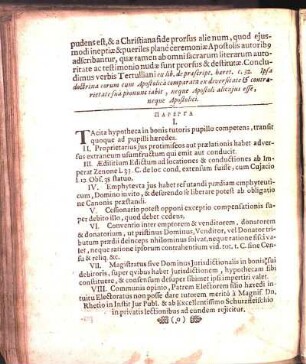 pudens est, & a Christiana fide prorsus alienum, quod ejus-
modi ineptiæ & pueriles planè ceremoniæ Apostolis autoribus
adscribantur, quæ tamen ab omni sacrarum literarum auto-
ritate ac testimonio nudæ sunt prorsus & destitutæ. Conclu-
dimus verbis Tertulliani ex lib. de præscript. hæret. c. 32. Ipsa
doctrina eorum cum Apostolica comparata ex diversitate & contra-
rietate sua pronunciabit, neque Apostoli alicujus esse,
neque Apostolici.
ΠΑΡΕΡΓΑ
I.
TAcita hypotheca in bonis tutoris pupillo competens, transit
quoque ad pupilli hæredes.
II. Proprietarius jus protimiseos aut prælationis habet adver-
sus extraneum usumfructum qui emit aut conducit.
III. Ædilitium Edictum ad locationes & conductiones ab Im-
perat. Zenone L. 33. C. de loc. cond. extensum fuisse, cum Cujacio
12. Obs. 38 statuo.
IV. Emphyteuta jus habet refutandi prædium emphyteuti-
cum, Domino invito, & deserendo se liberare potest ab obligatio-
ne Canonis præstandi.
V. Cessionario potest opponi exceptio compensationis
debito illo, quod debet cedens.
VI. Conventio inter emptorem & venditorem, donatorem
& donatarium, ut pristinus Dominus, Venditor, vel Donator tri-
butum prædii deinceps nihilominus solvat, neque ratione fisci va-
let, neque ratione ipsorum contrahentium vid. tot. t. C. sine Cen-
su & reliq. &c.
VII. Magistratus sive Dominus Jurisdictionalis in bonis sui
debitoris, super quibus habet Jurisdictionem, hypothecam sibi
constituere, & consensum desuper sibimet ipsi impertiri valet.
VIII. Communis opinio, Patrem Electorem filio hæredi in-
tuitu Electoratus non posse dare tutorem meritò à Magnif. Dn.
Rhetio in Instit Jur Publ. & ab Excellentissimo Schurtzfleischio
in privatis lectionibus ad eundem rejicitur.
(o)